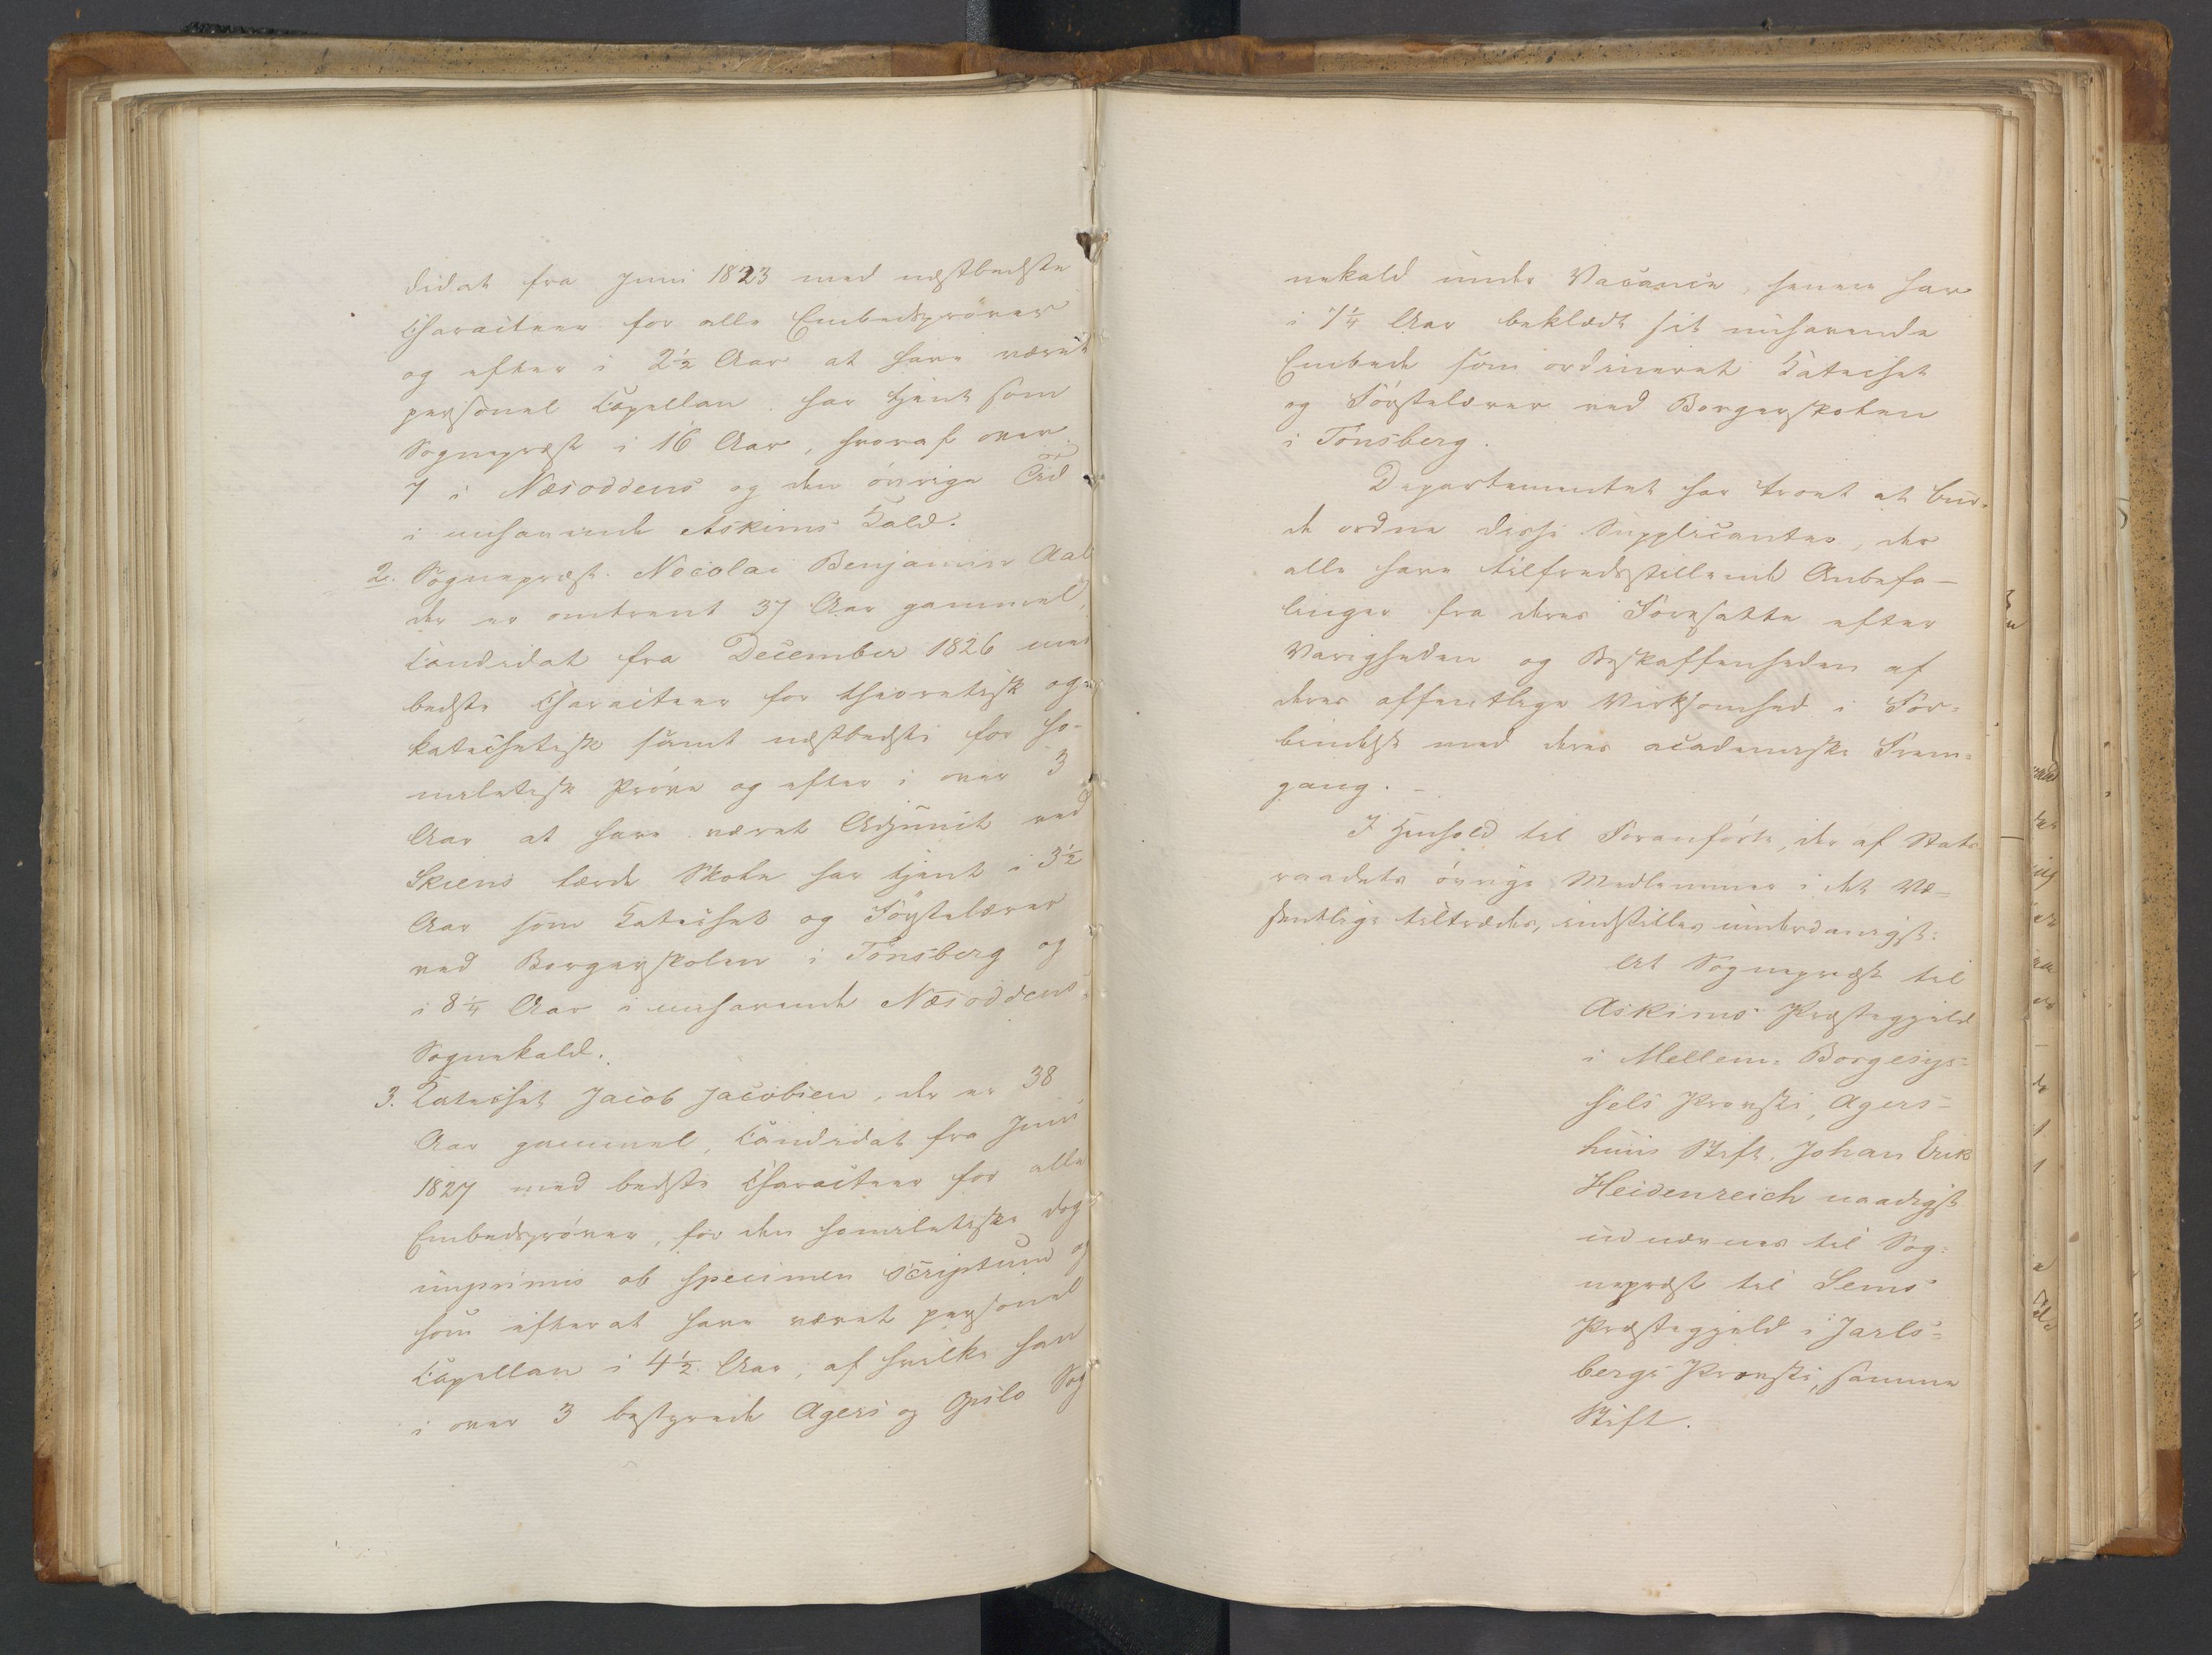 didat fra Juni 1823 med næstbedste
Characteer for alle Embedsprøver
og efter i 2½ Aar at have været
personel Capellan har tjent som
Sognepræst i 16 Aar, hvoraf over
7 i Næsoddens og den øvrige Tid
i nuhavende Askims Kald.
2. Sognepræst Nicolai Benjamin Aall
der er omtrent 37 Aar gammel,
Candidat fra December 1826 med
bedste Characteer for theoretisk og
katechetisk samt næstbedste for ho-
miletisk Prøve og efter i over 3
Aar at have været Adjunct ved
Skiens lærde Skole har tjent i 3½
Aar som Catechet og Førstelærer
ved Borgerskolen i Tønsberg og
i 8¼ Aar i nuhavende Næsoddens
Sognekald.
3. Catechet Jacob Jacobsen, der er 38
Aar gammel, Candidat fra Juni
1827 med bedste Characteer for alle
Embedsprøver, for den homiletiske dog
imprimis ob specimen scriptum og
som efterat have været personel
Capellan i 4½ Aar, af hvilke han
i over 3 bestyrede Agers og Opslo Sog
nekald under Vacance, senere har
i 7¼ Aar beklædt sit nuhavende
Embede som ordineret Catechet
og Førstelærer ved Borgerskolen
i Tønsberg.
Departementet har troet at bur-
de ordne disse Supplicanter, der
alle have tilfredsstillende Anbefa-
linger fra deres Foresatte efter
Varigheden og Beskaffenheden af
deres offentlige Virksomhed i For-
bindelse med deres academiske Frem-
gang. -
I Henhold til Foranførte, der af Stats
raadets øvrige Medlemmer i det Væ-
sentlige tiltrædes, indstilles underdanigst:
At Sognepræst til
Askims Præstegjeld
i Mellem-Borgesys-
sels Provsti, Agers-
huus Stift, Johan Erik
Heidenreich naadigst
udnævnes til Sog-
nepræst til Sems
Præstegjeld i Jarls-
bergs Provsti, samme
Stift.